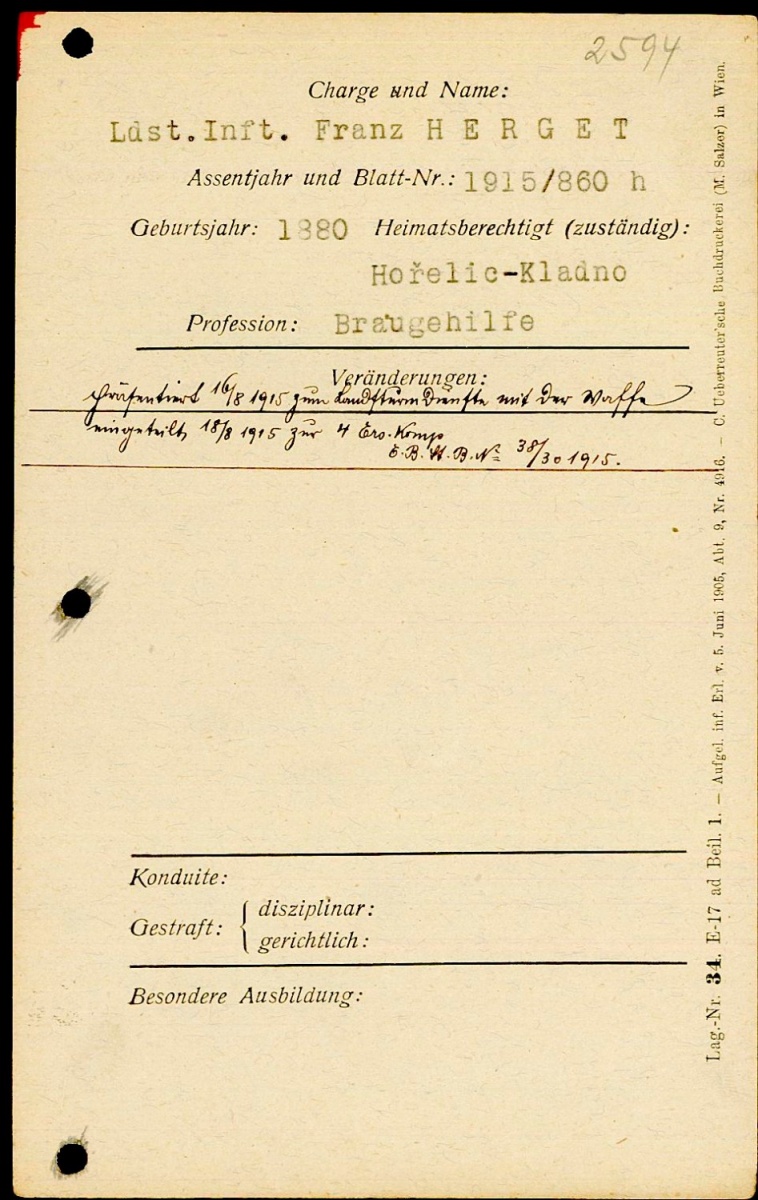 2594
Charge und Name:
Ldst.Inft. Franz H E R G E T
Assentjahr und Blatt-Nr.: 1915/860 h
Geburtsjahr: 1880 Heimatsberechtigt (zuständig):
Hořelic-Kladno
Profession: Braugehilfe
Veränderungen:
präsentiert 16/8 1915 zum Landsturmdienste mit der Waffe
eingeteilt 18/8 1915 zur 4 Ers. Komp
E.B. St. B. No 38/30 1915.
Konduite:
Gestraft: { disziplinar:
gerichtlich:
Besondere Ausbildung:
Lag.-Nr. 34. E-17 ad Beil. 1. — Aufgel. inf. Erl. v. 5. Juni 1905, Abt. 9, Nr. 4916. — C. Ueberreuter'sche Buchdruckerei (M. Salzer) in Wien.